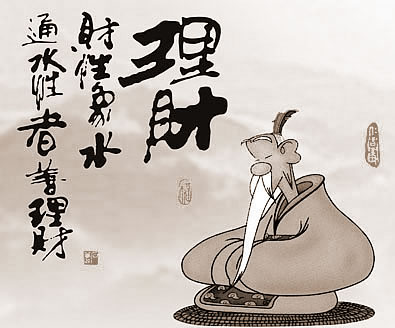 理財
財性象水
通水性者善理財